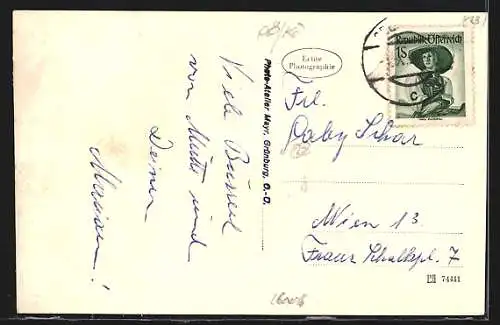 Viele Busserl
von Mutti und
Deiner
Echte
Photographie
Photo-Atelier Mayr, Grünburg, O.-D.
Republik Österreich
1S
Frl.
Wien 13.
Franz Schalkpl. 7
74441